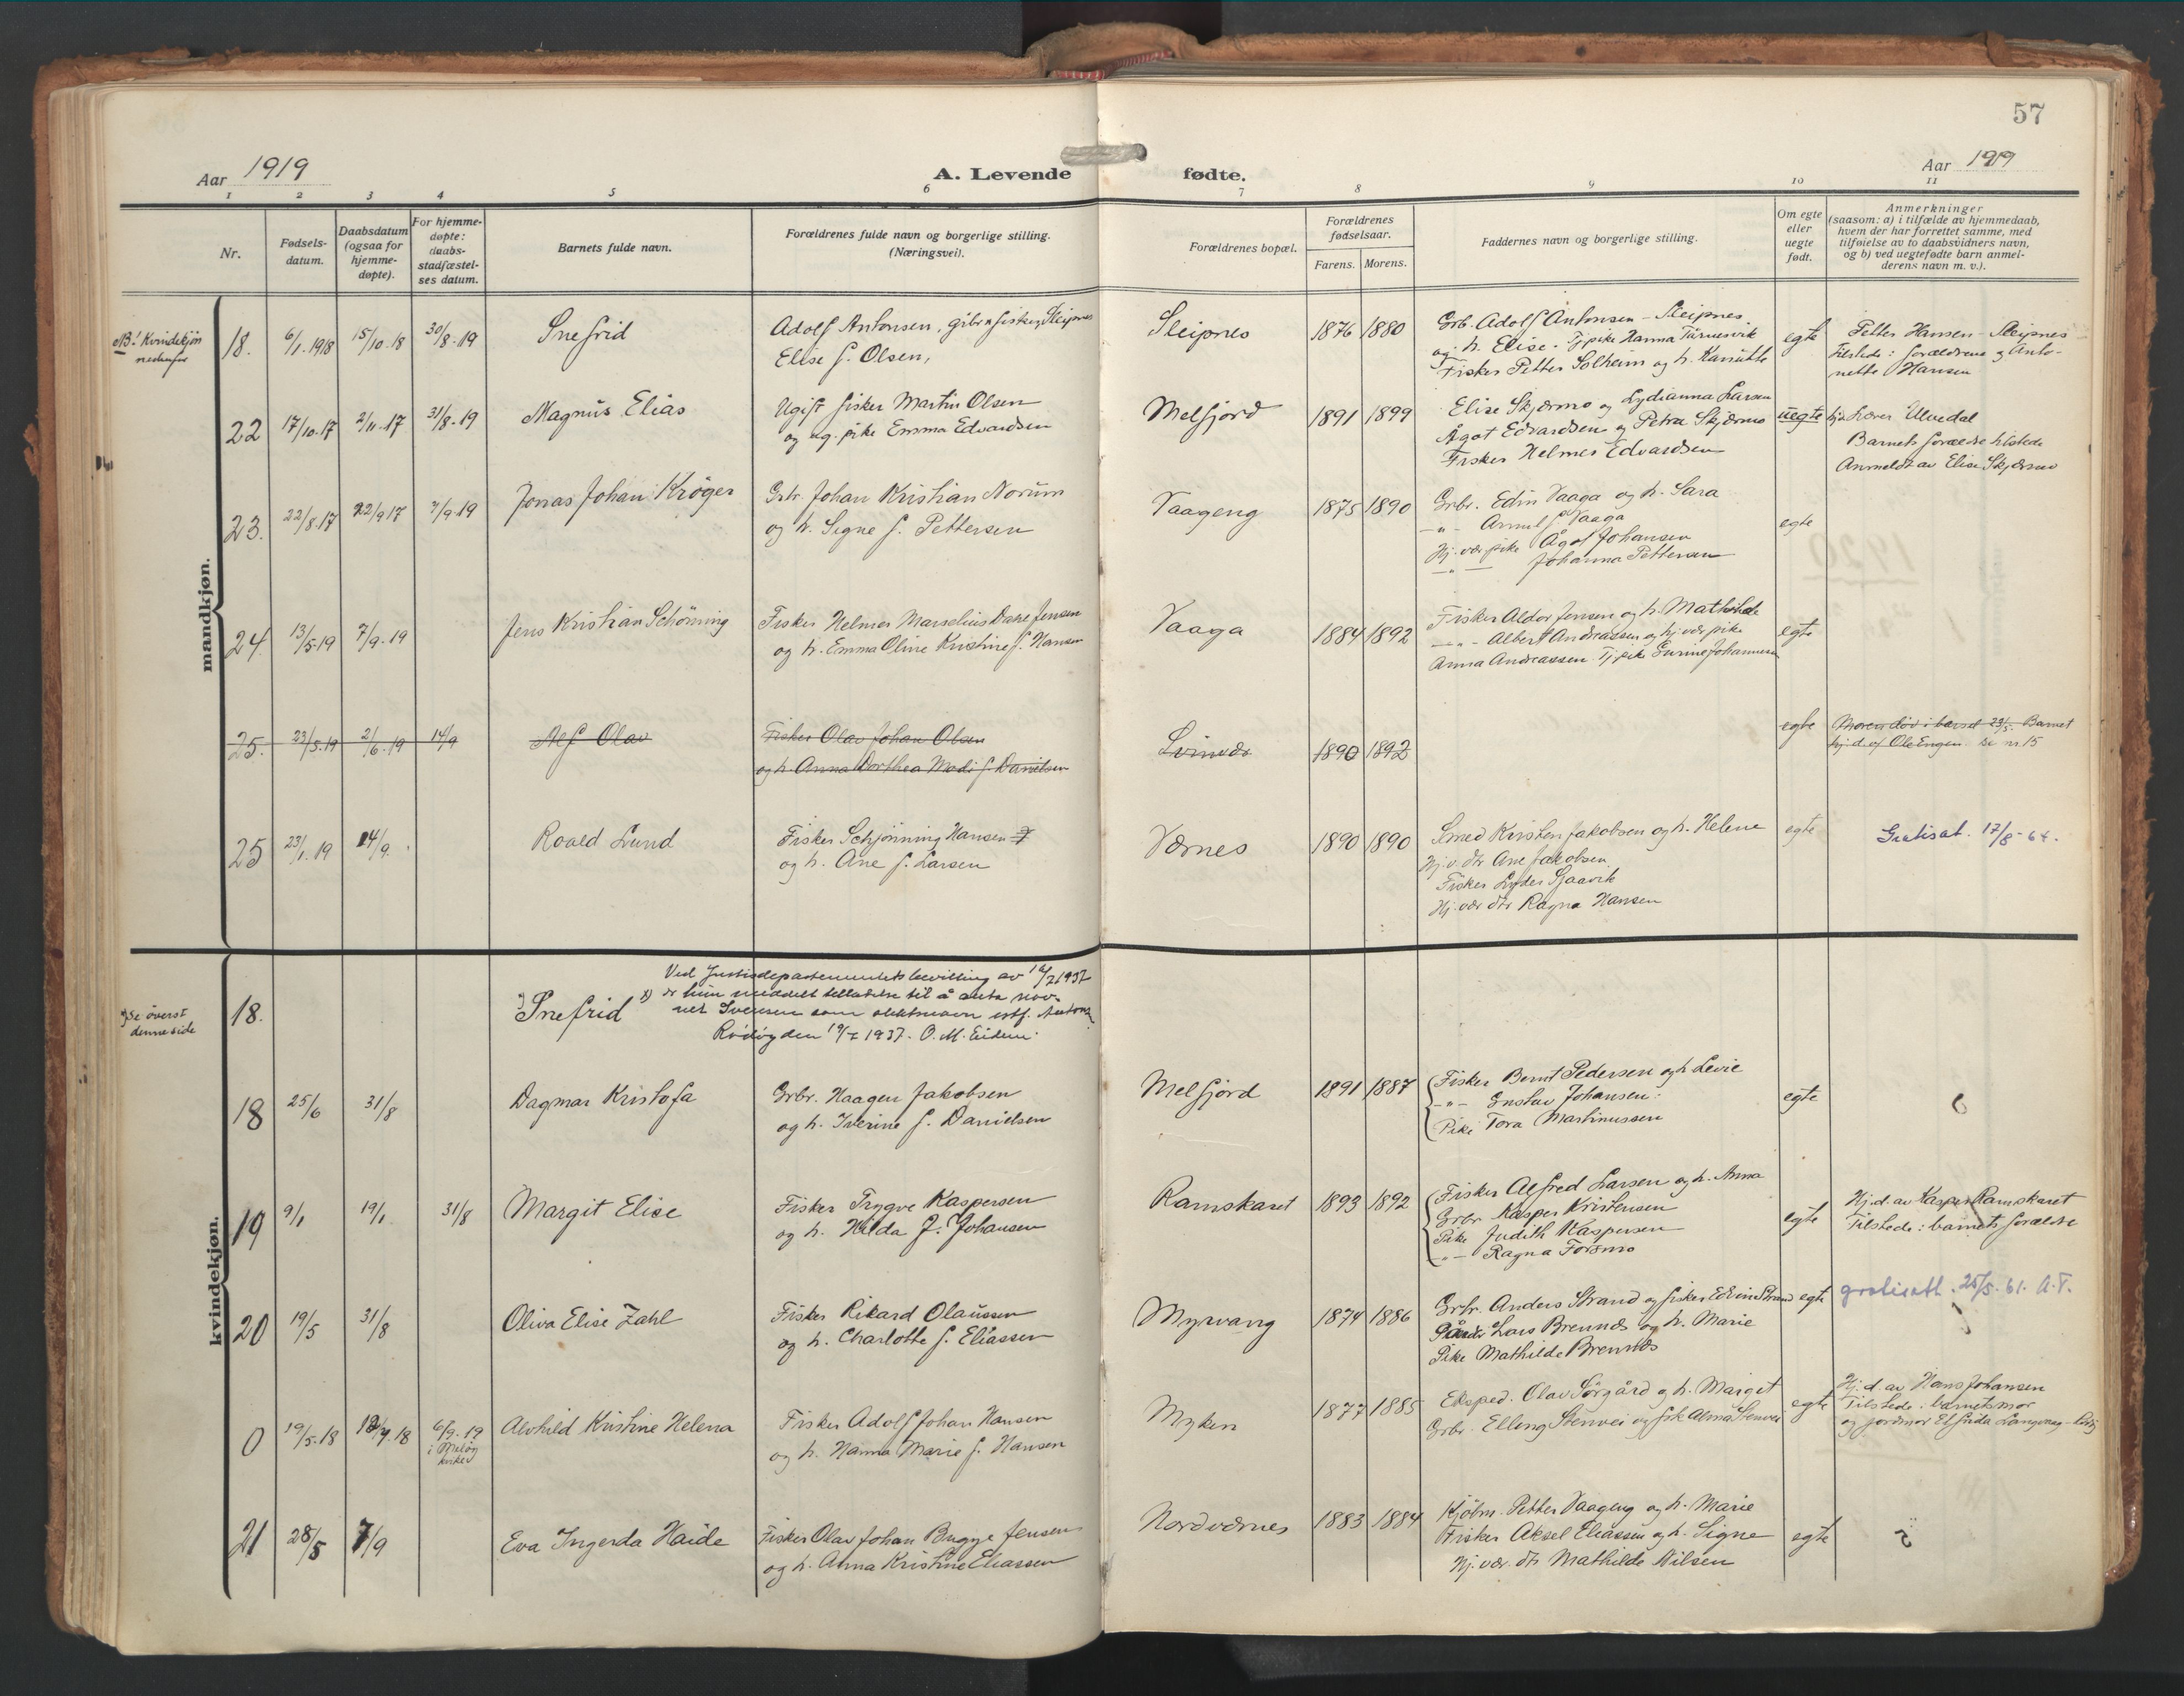 57
Aar 1919
A. Levende fødte.
Aar 1919
1 2 3 4 5 6 7 8 9 10 11
Nr.
Fødsels-
datum.
Daabsdatum
(ogsaa for
hjemme-
døpte).
For hjemme-
døpte:
daabs-
stadfæstel-
ses datum.
Barnets fulde navn.
Forældrenes fulde navn og borgerlige stilling.
(Næringsvei).
Forældrenes bopæl.
Forældrenes
fødselsaar.
Farens. Morens.
Faddernes navn og borgerlige stilling.
Om egte
eller
uegte
født.
Anmerkninger
(saasom: a) i tilfælde av hjemmedaab,
hvem der har forrettet samme, med
tilføielse av to daabsvidners navn,
og b) ved uegtefødte barn anmel-
derens navn m. v.).
mandkjøn.
NB! Kvindekjön
nedenfor
18. 6/1.1918 15/10.18 30/8.19 Snefrid
Adolf Antonsen, gbr. fisker, Sleipnes
Elise f. Olsen,
Sleipnes 1876 1880
Grb. Adolf Antonsen - Sleipnes
og h. Elise. Tj.pike Hanna
Fisker Petter Solheim og h.
egte
Petter Hansen - Sleipnes
tilstede: forældrene og Anto-
nette Hansen
22 17/10.17 2/11.17 31/8.19 Magnus Elias
Ugift fisker Martin Olsen
og ug. pike Emma Edvardsen
Melfjord 1891 1899
Elise Skjærmo og Lydianna Larsen
Ågot Edvardsen og Petra Skjærmo
Fisker Helmer Edvardsen
uegte
hj. Lærer Ulvedal
Barnets forældre tilstede
Anmeldt av Elise Skjærmo
23. 22/8.17 22/9 17 7/9.19 Jonas Johan Kröger
Gbr. Johan Kristian Norum
og h. Signe f. Pettersen
Vaageng 1875 1890
Grbr. Edin Vaaga og h. Sara
-"- Vaaga
Hj. vær. pike Ågot Johansen
-"- Johanna Pettersen
egte
24. 13/5.19 7/9.19 Jens Kristian Schönning
Fisker Helmer Marselius Dahe Jensen
og h. Emma Oline Kristine f. Hansen
Vaaga 1884 1892
Fisker Aldor Jensen og h. Mathilde
-"- Albert Andreassen og hj. vær pike
Anna Andreassen. Tj. pike Gurine Johannesen
egte
25. 23/5.19 2/6.19 14/9 Alf Olav
Fisker Olav Johan Olsen
og h. Anna Dorthea Modi f. Danielsen
Svinvær 1890 1892
egte
Moren död i barsel 23/5. Barnet
hj.d. af Ole Engen se nr 15
25 23/1.19 14/9. Roald Lund
Fisker Schjönning Hansen
og h. Ane f. Larsen
Værnes 1890 1890
Smed Kristen Jakobsen og h. Helene
Hj. v. dtr Ane Jakobsen
Fisker Lyder Sjaavik
Hj. vær dtr Ragna Hansen
egte
Gratisat. 17/8-64.
kvindekjøn.
Se överst
denne side
18. Snefrid
Ved Justisdepartementets bevilling av 1937
er hun meddelt tilladelse til å anta nav-
net Iversen som slektsnavn istf. Antons.
Rödöy den 19/7 1937. O. M. Eidem.
18 25/6 31/8 Dagmar Kristofa
Grbr. Haagen Jakobsen
og h. Iverine f. Danielsen
Melfjord 1891 1887
Fisker Bernt Pedersen og h. Levie
-"- Gustav Johansen
Pike Tora Martinussen
egte
19 9/1 19/1 31/8 Margit Elise
Fisker Trygve Kaspersen
og h. Hilda J. Johansen
Ramskaret 1893 1892
Fisker Alfred Larsen og h. Anna
Grbr Kasper Kristensen
Pike Judith Kaspersen
-"- Ragna Forsmo
egte
Hj.d. av Kasper Ramskaret
Tilstede: barnets forældre
20 19/5 31/8 Oliva Elise Zahl
Fisker Rikard Olaussen
og h. Charlotte f. Eliassen
Myrvang 1874 1886
Grbr. Anders Strand og fisker Edvin Strand
Lars Brennæs og h. Marie
Pike Mathilde Brennæs
egte
gratisatt. 25/5. 61. A.T.
0 19/5.18 18 6/9.19
i Melöy
kirke
Alvhild Kristine Helena
Fisker Adolf Johan Hansen
og h. Hanna Marie f. Hansen
Myken 1877 1885
Eksped. Olav Sörgård og h. Marget
Grbr. Elling Stenvei og fsk Alma Stenvei
egte
Hj.d. av Hans Johansen
Tilstede: barnets mor
og jordmor Elfrida
21 28/5 7/9 Eva Ingerda Haide
Fisker Olav Johan Bugge Jensen
og h. Anna Kristine Eliassen
Nordværnes 1883 1884
Kjöbm. Petter Vaageng og h. Marie
Fisker Aksel Eliassen og h. Signe
Hj. vær. dtr Mathilde Nilsen
egte